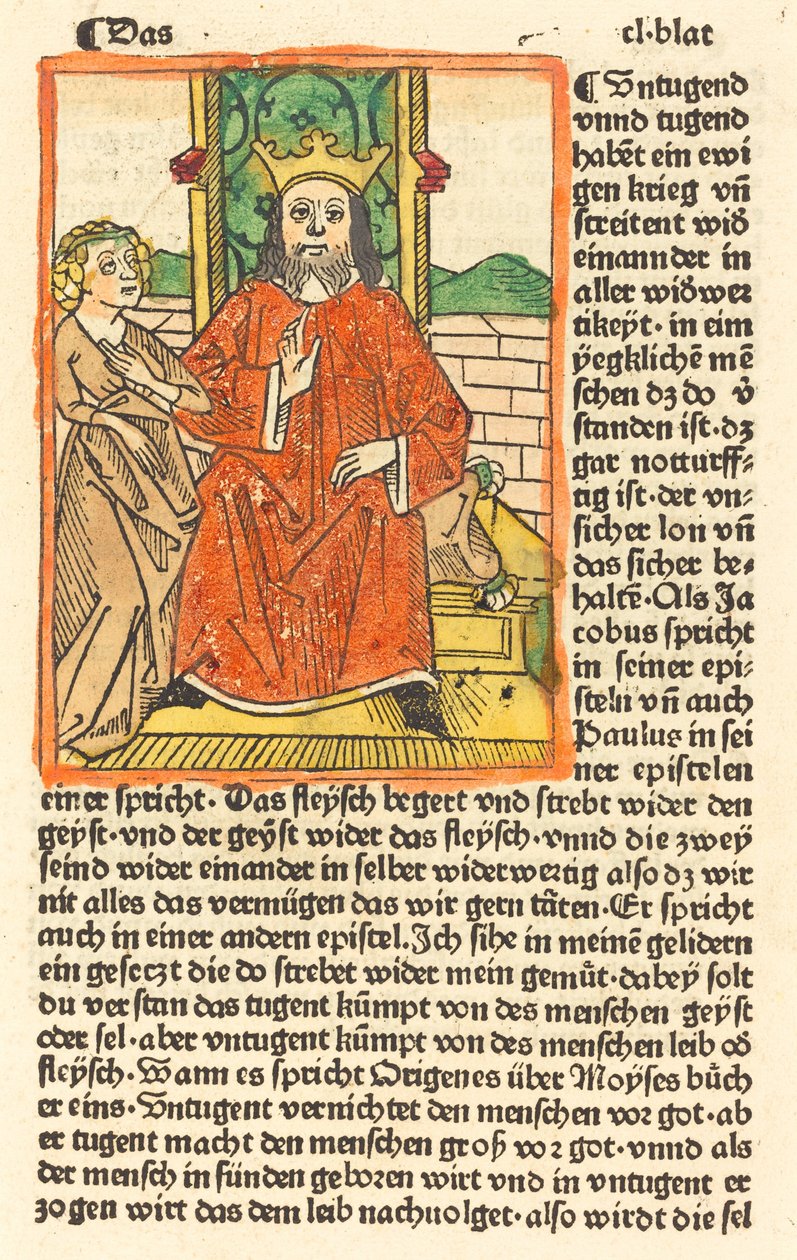 ¶ Das cl·blat
¶ Vntugend
vnnd tugend
habēt ein ewi
gen krieg vn̄
streitent wid͛
einannder in
aller wid͛wer
tikeÿt· in eim
ÿegklichē mē
schen dʒ do v͛
standen ist·dʒ
gar notturff⸗
tig ist·der vn⸗
sicher lon vn̄
das sicher be⸗
haltē·Als Ja
cobus spricht
in seiner epi⸗
steln vn̄ auch
Paulus in sei
ner epistelen
einer spricht· Das fleÿsch begert vnd strebt wider den
geÿst·vnd der geÿst wider das fleÿsch·vnnd die zweÿ
seind wider einander in selber widerwertig also dʒ wir
nit alles das vermügen das wir gern tāten·Er spricht
auch in einer andern epistel.Ich sihe in meinē gelidern
ein gesetzt die do strebet wider mein gemuͤt·dabeÿ solt
du verstan das tugent kūmpt von des menschen geÿst
oder sel·aber vntugent kūmpt von des menschen leib od͛
fleÿsch·Wann es spricht Origenes über Moÿses buͤch
er eins·Vntugent vernichtet den menschen vor got·ab
er tugent macht den menschen groß vor got·vnnd als
der mensch in sünden geboren wirt vnd in vntugent er
zogen wirt das dem leib nachuolget·also wirdt die sel